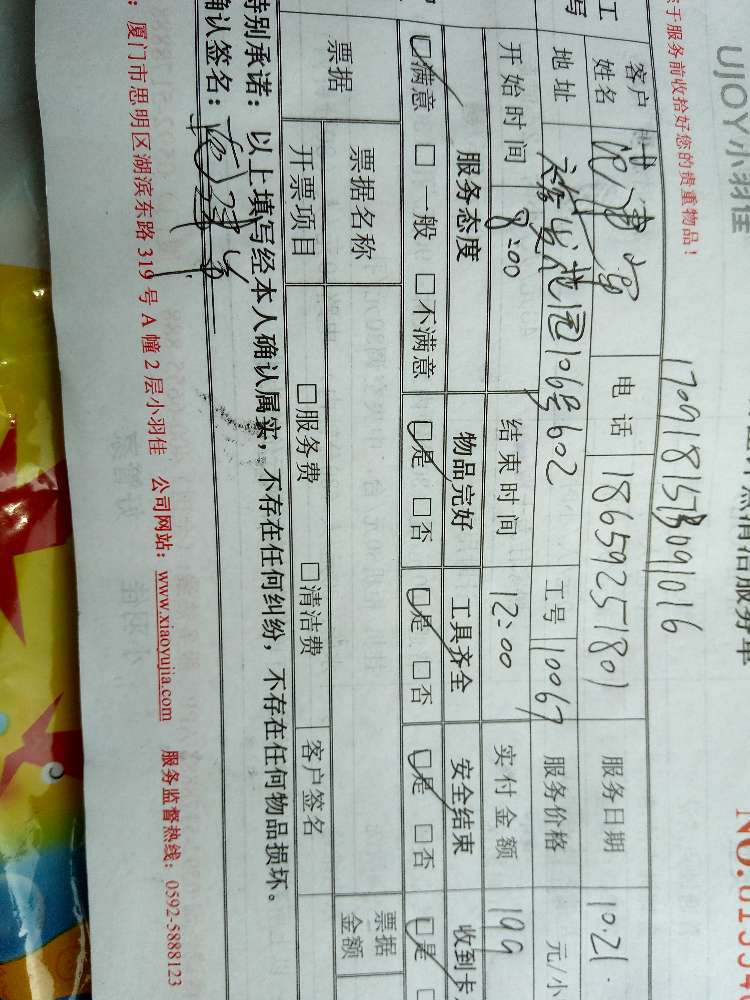 UJOY小羽佳
洁服务单
NO.
于服务前收拾好您的贵重物品！
170918157309 1016
客户姓名 电话 18659251801 服务日期 10.21
地址 裕发花园106号602 工号 10067 服务价格 元/小
开始时间 8:00 结束时间 12:00 实付金额 199
服务态度 物品完好 工具齐全 安全结束 收到卡
□满意 □一般 □不满意 □是 □否 □是 □否 □是 □否 □是
票据 票据名称 票据金额
开票项目 □服务费 □清洁费 客户签名
特别承诺：以上填写经本人确认属实，不存在任何纠纷，不存在任何物品损坏。
确认签名：
：厦门市思明区湖滨东路 319 号 A 幢 2 层小羽佳 公司网站：www.xiaoyujia.com 服务监督热线：0592-5888123